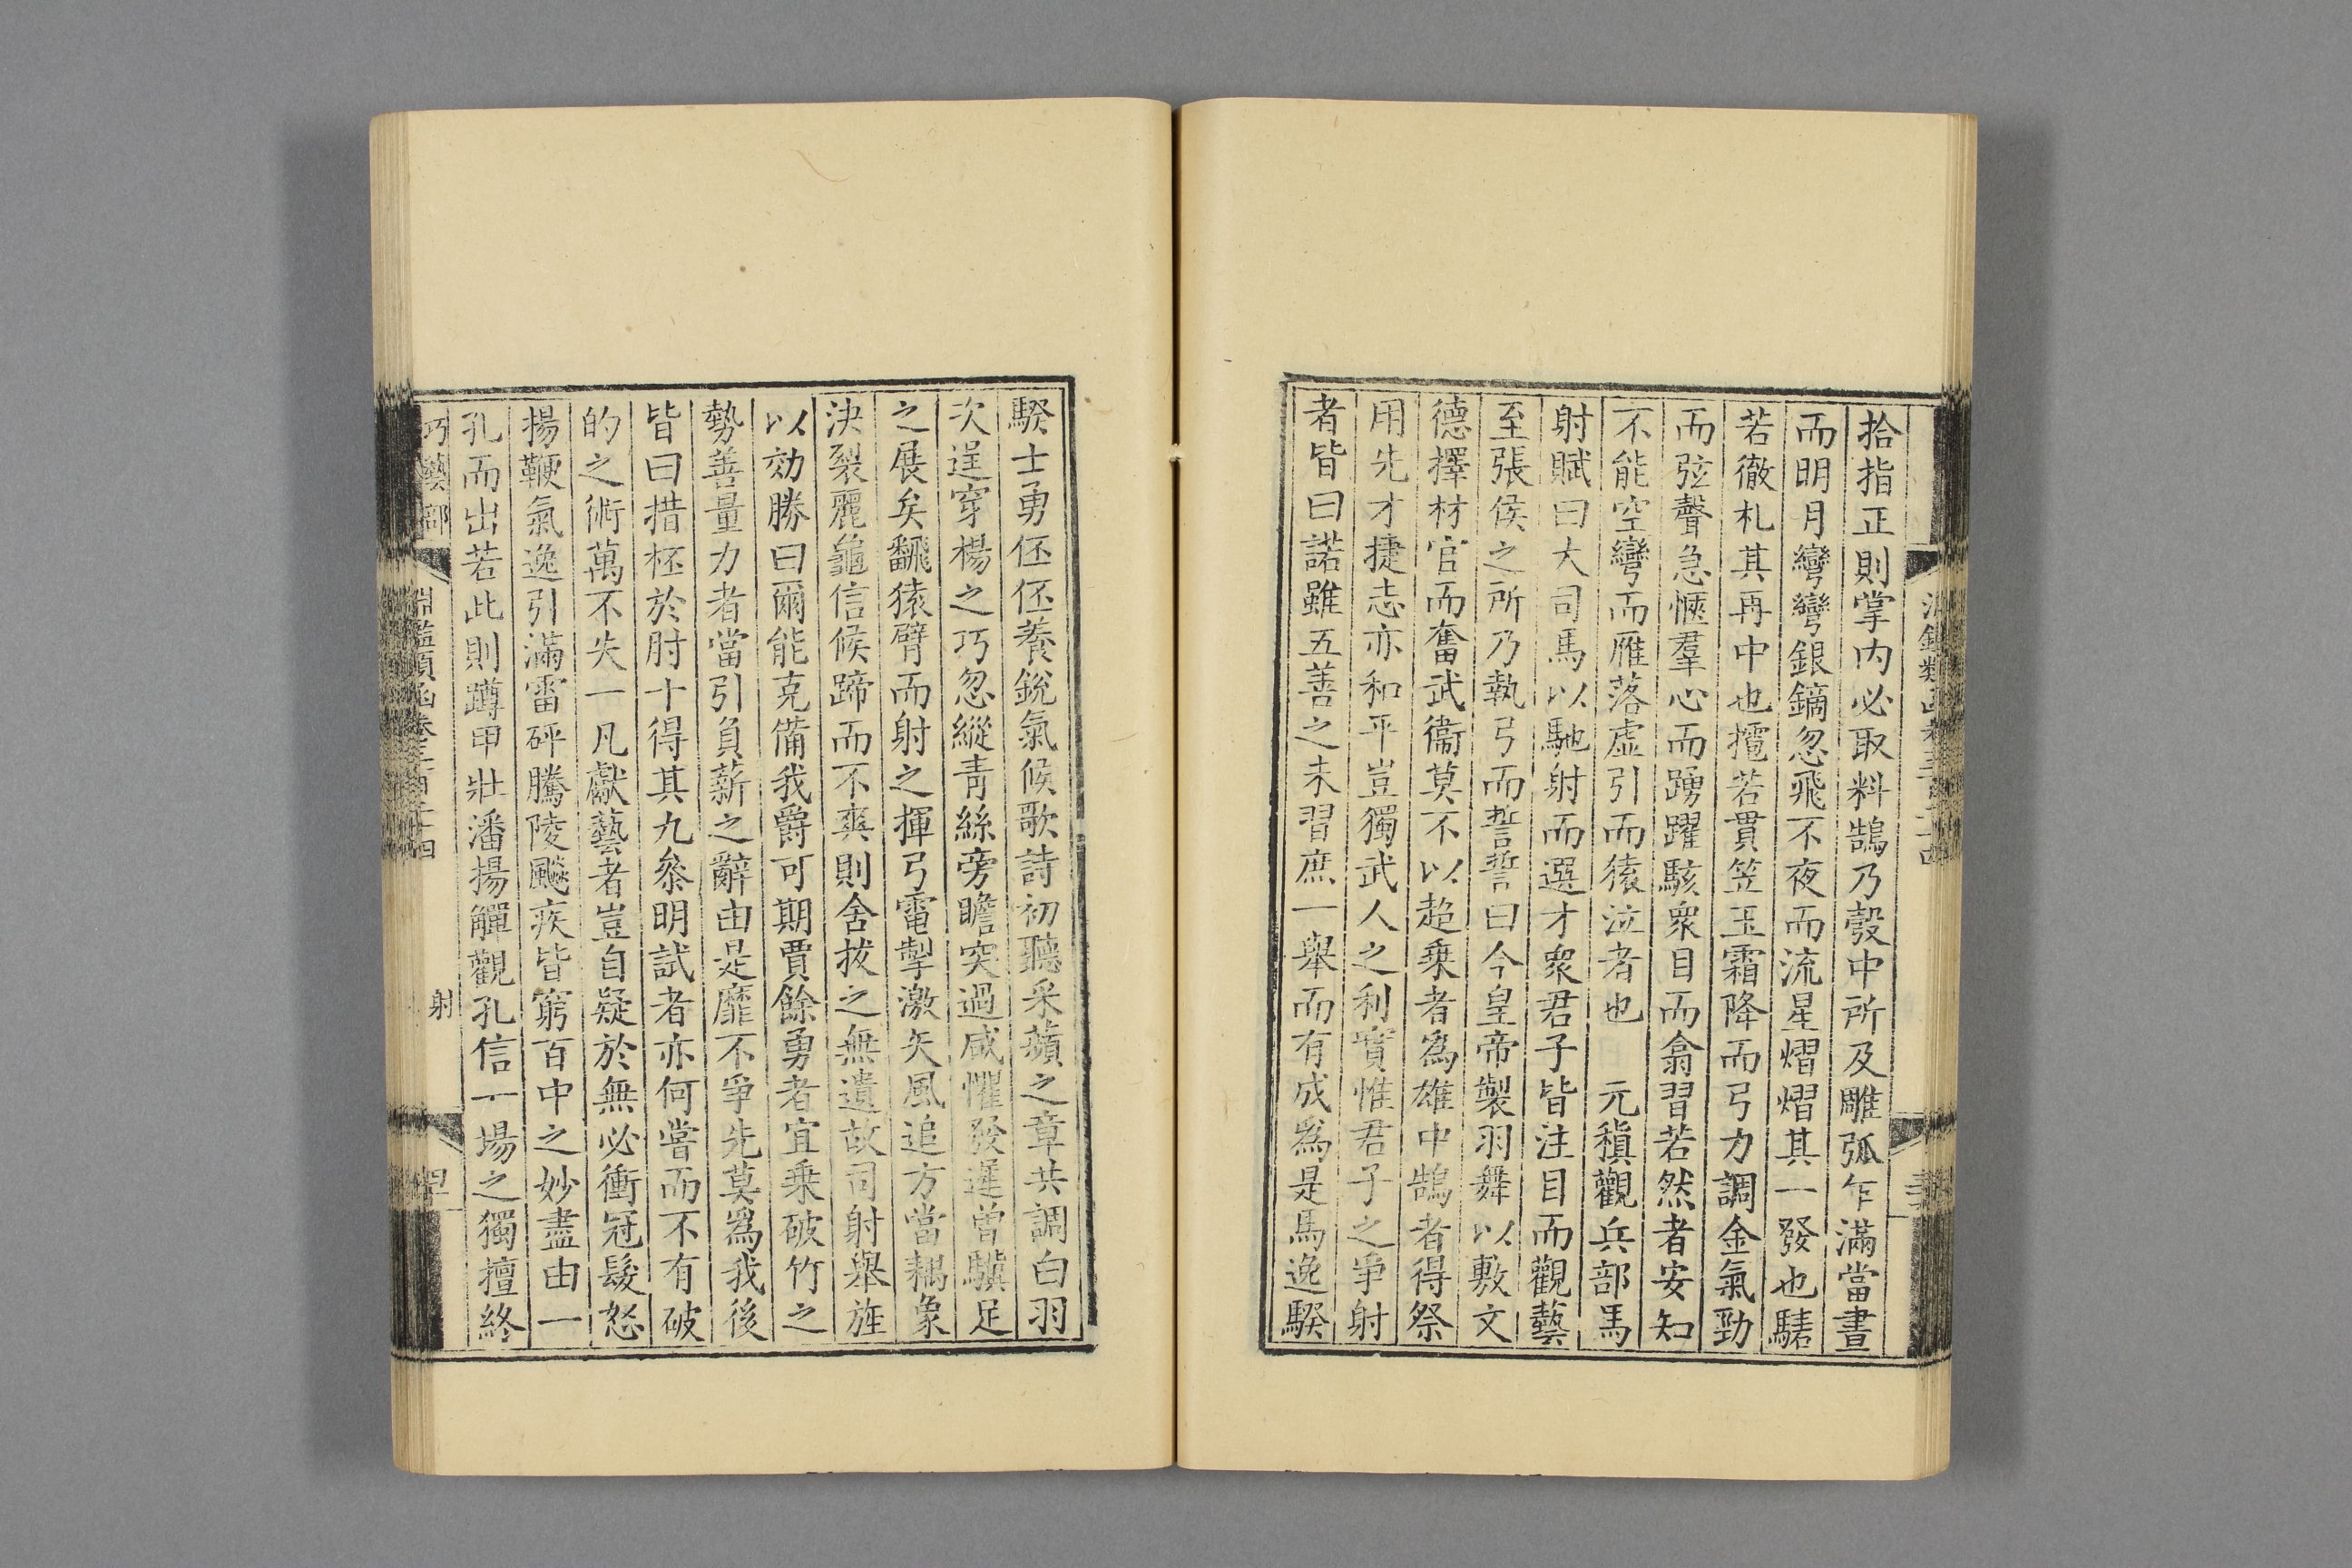 拾指正則掌内必取料鵠乃彀中所及雕弧乍滿當晝
而明月彎彎銀鏑忽飛不夜而流星熠熠其一發也驌
若徹札其再中也揊若貫笠玉霜降而弓力調金氣勁
而弦聲急愜羣心而踴躍駭衆目而翕習若然者安知
不能空彎而雁落虛引而猿泣者也　元稹觀兵部馬
射賦曰大司馬以馳射而選才衆君子皆注目而觀藝
至張侯之所乃執弓而誓誓曰今皇帝製羽舞以敷文
德擇材官而奮武衞莫不以趫乗者爲雄中鵠者得祭
用先才捷志亦和平豈獨武人之利實惟君子之爭射
者皆曰諾雖五善之未習庶一舉而有成爲是馬逸騤
騤士勇伾伾養銳氣候歌詩初聽采蘋之章共調白羽
次逞穿楊之巧忽縱靑絲旁瞻突過咸懼發遲曾驥足
之展矣翻猿臂而射之揮弓電掣激矢風追方當耦象
決裂麗龜信候蹄而不爽則舍拔之無遺故司射舉旌
以効勝曰爾能克備我爵可期賈餘勇者宜乗破竹之
勢善量力者當引負薪之辭由是靡不爭先莫爲我後
皆曰措杯於肘十得其九叅明試者亦何嘗而不有破
的之術萬不失一凡獻藝者豈自疑於無必衝冠髮怒
揚鞭氣逸引滿雷砰騰陵飈疾皆窮百中之妙盡由一
孔而出若此則蹲甲壯潘揚觶觀孔信一場之獨擅終
巧藝部　淵鑑類函卷三百二十四　射